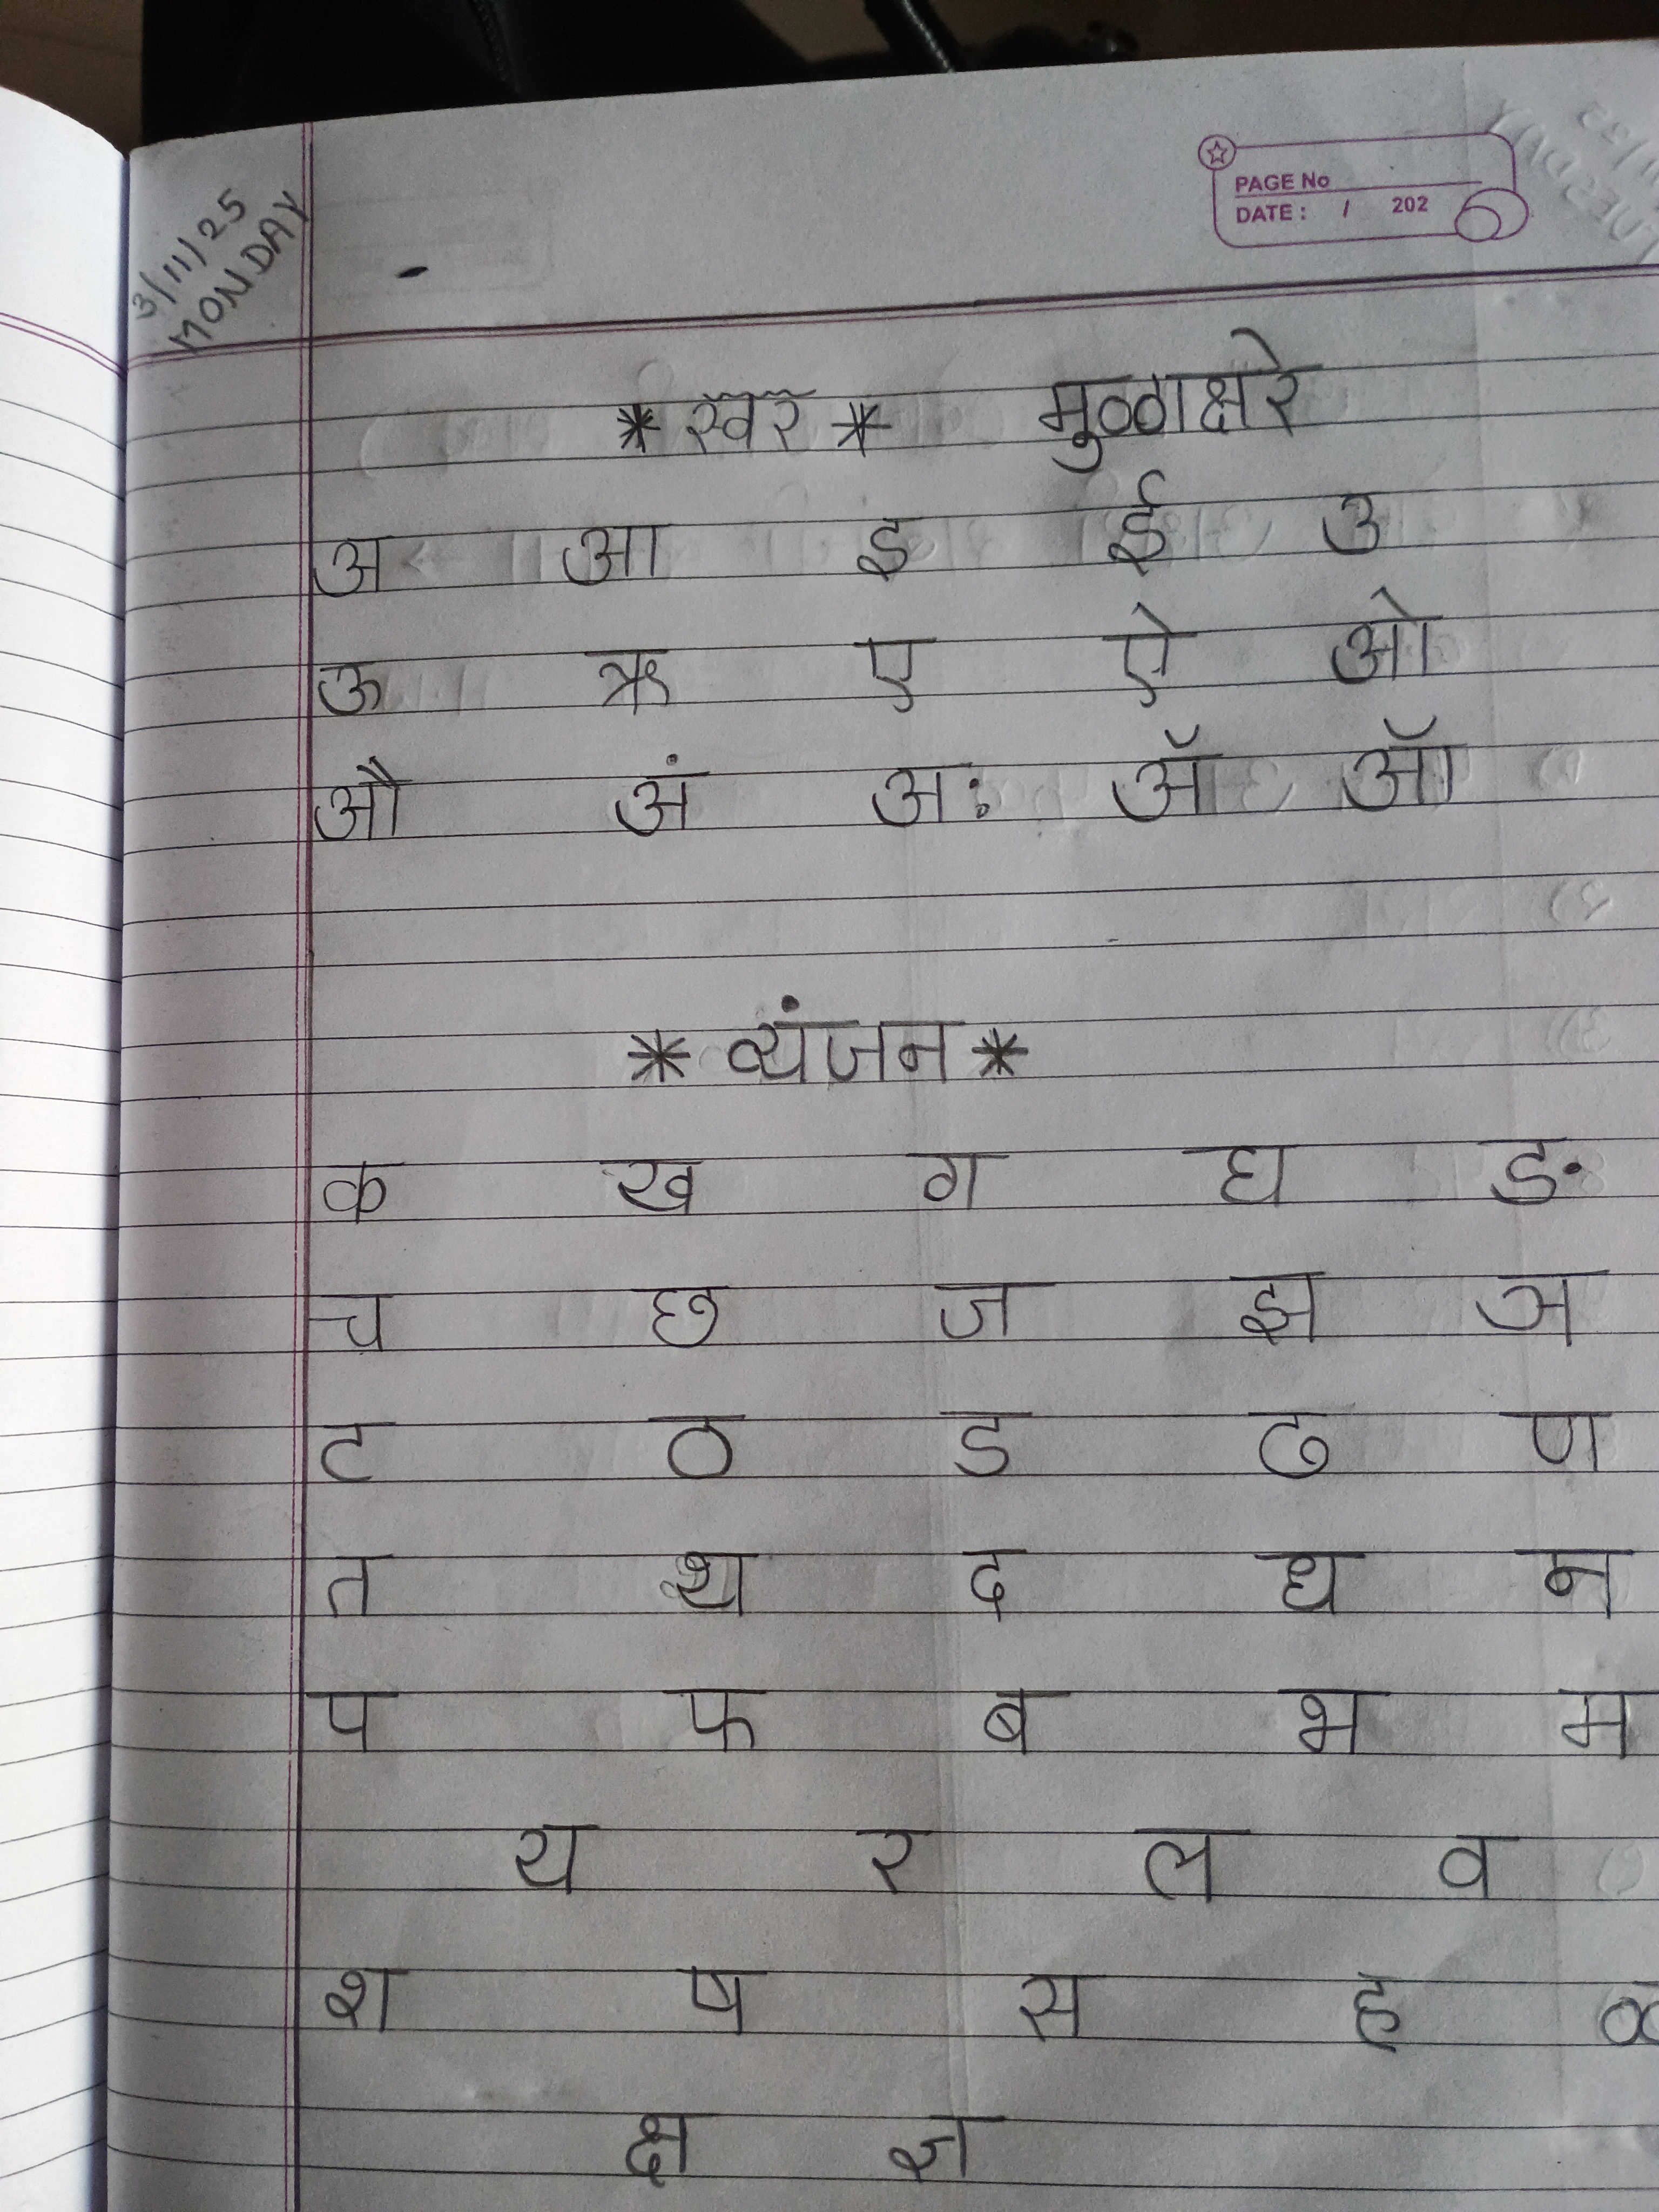 3/11/25
MONDAY
PAGE No
DATE : / 202
* स्वर * मुळाक्षरे
अ आ इ ई उ
ऊ ऋ ए ऐ ओ
औ अं अः ॲ ऑ
* व्यंजन *
क ख ग घ ङ
च छ ज झ ञ
ट ठ ड ढ ण
त थ द ध न
प फ ब भ म
य र ल व
श ष स ह ळ
क्ष ज्ञ